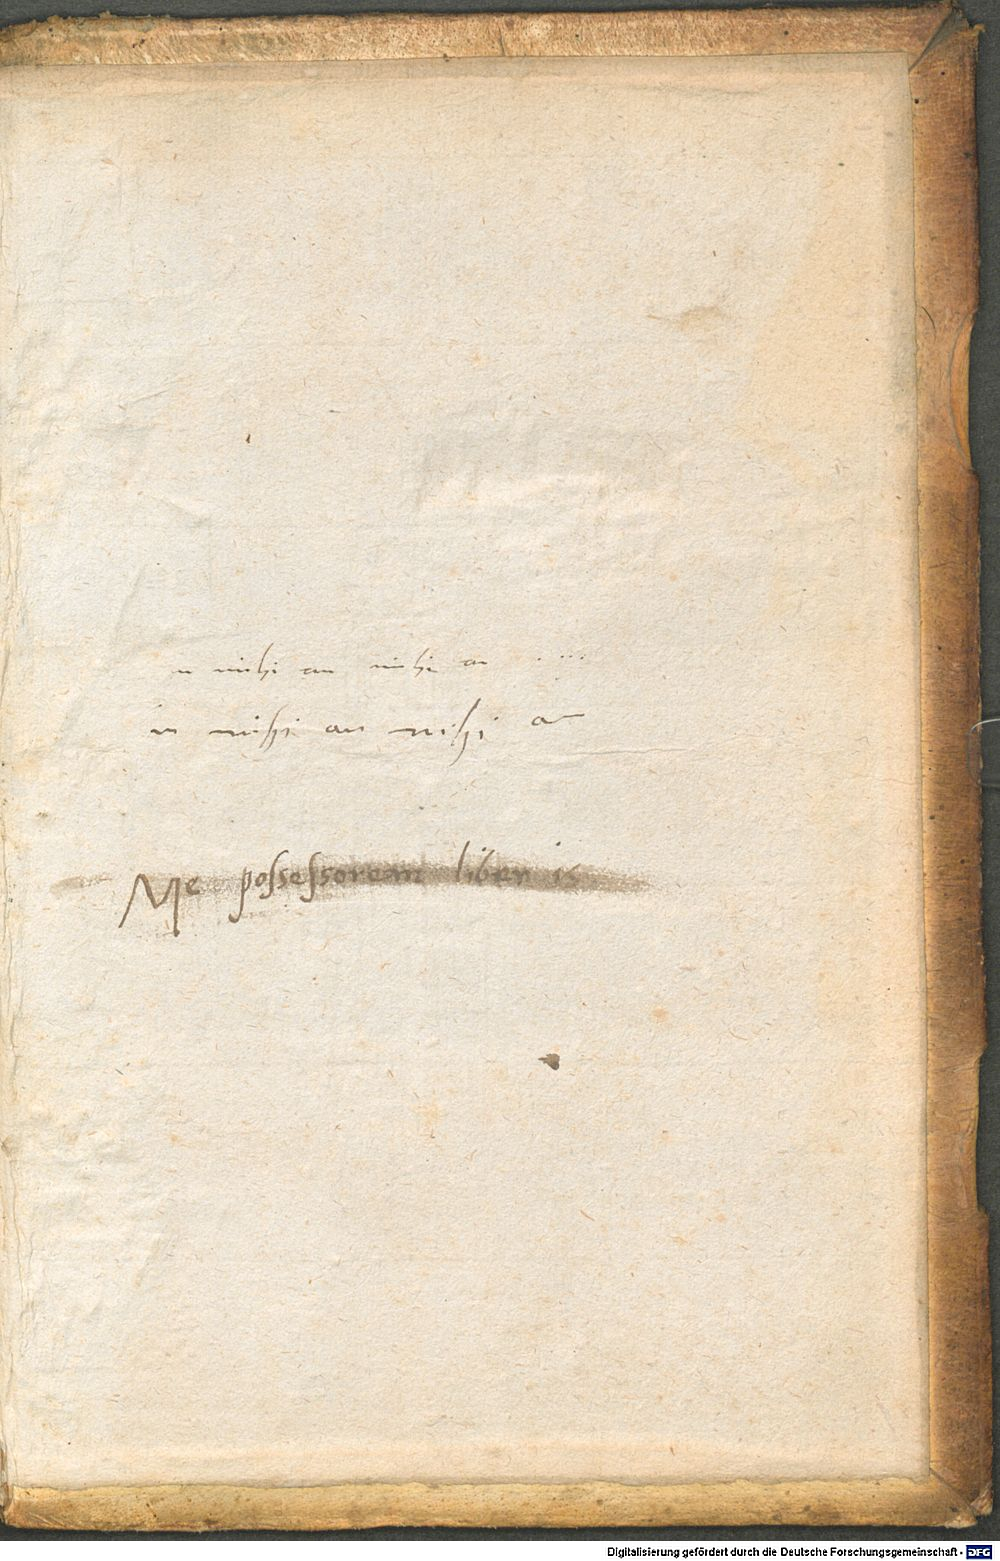 n mihi an mihi an
in mihi an mihi a
Me possessorem liber is
Digitalisierung gefördert durch die Deutsche Forschungsgemeinschaft - DFG